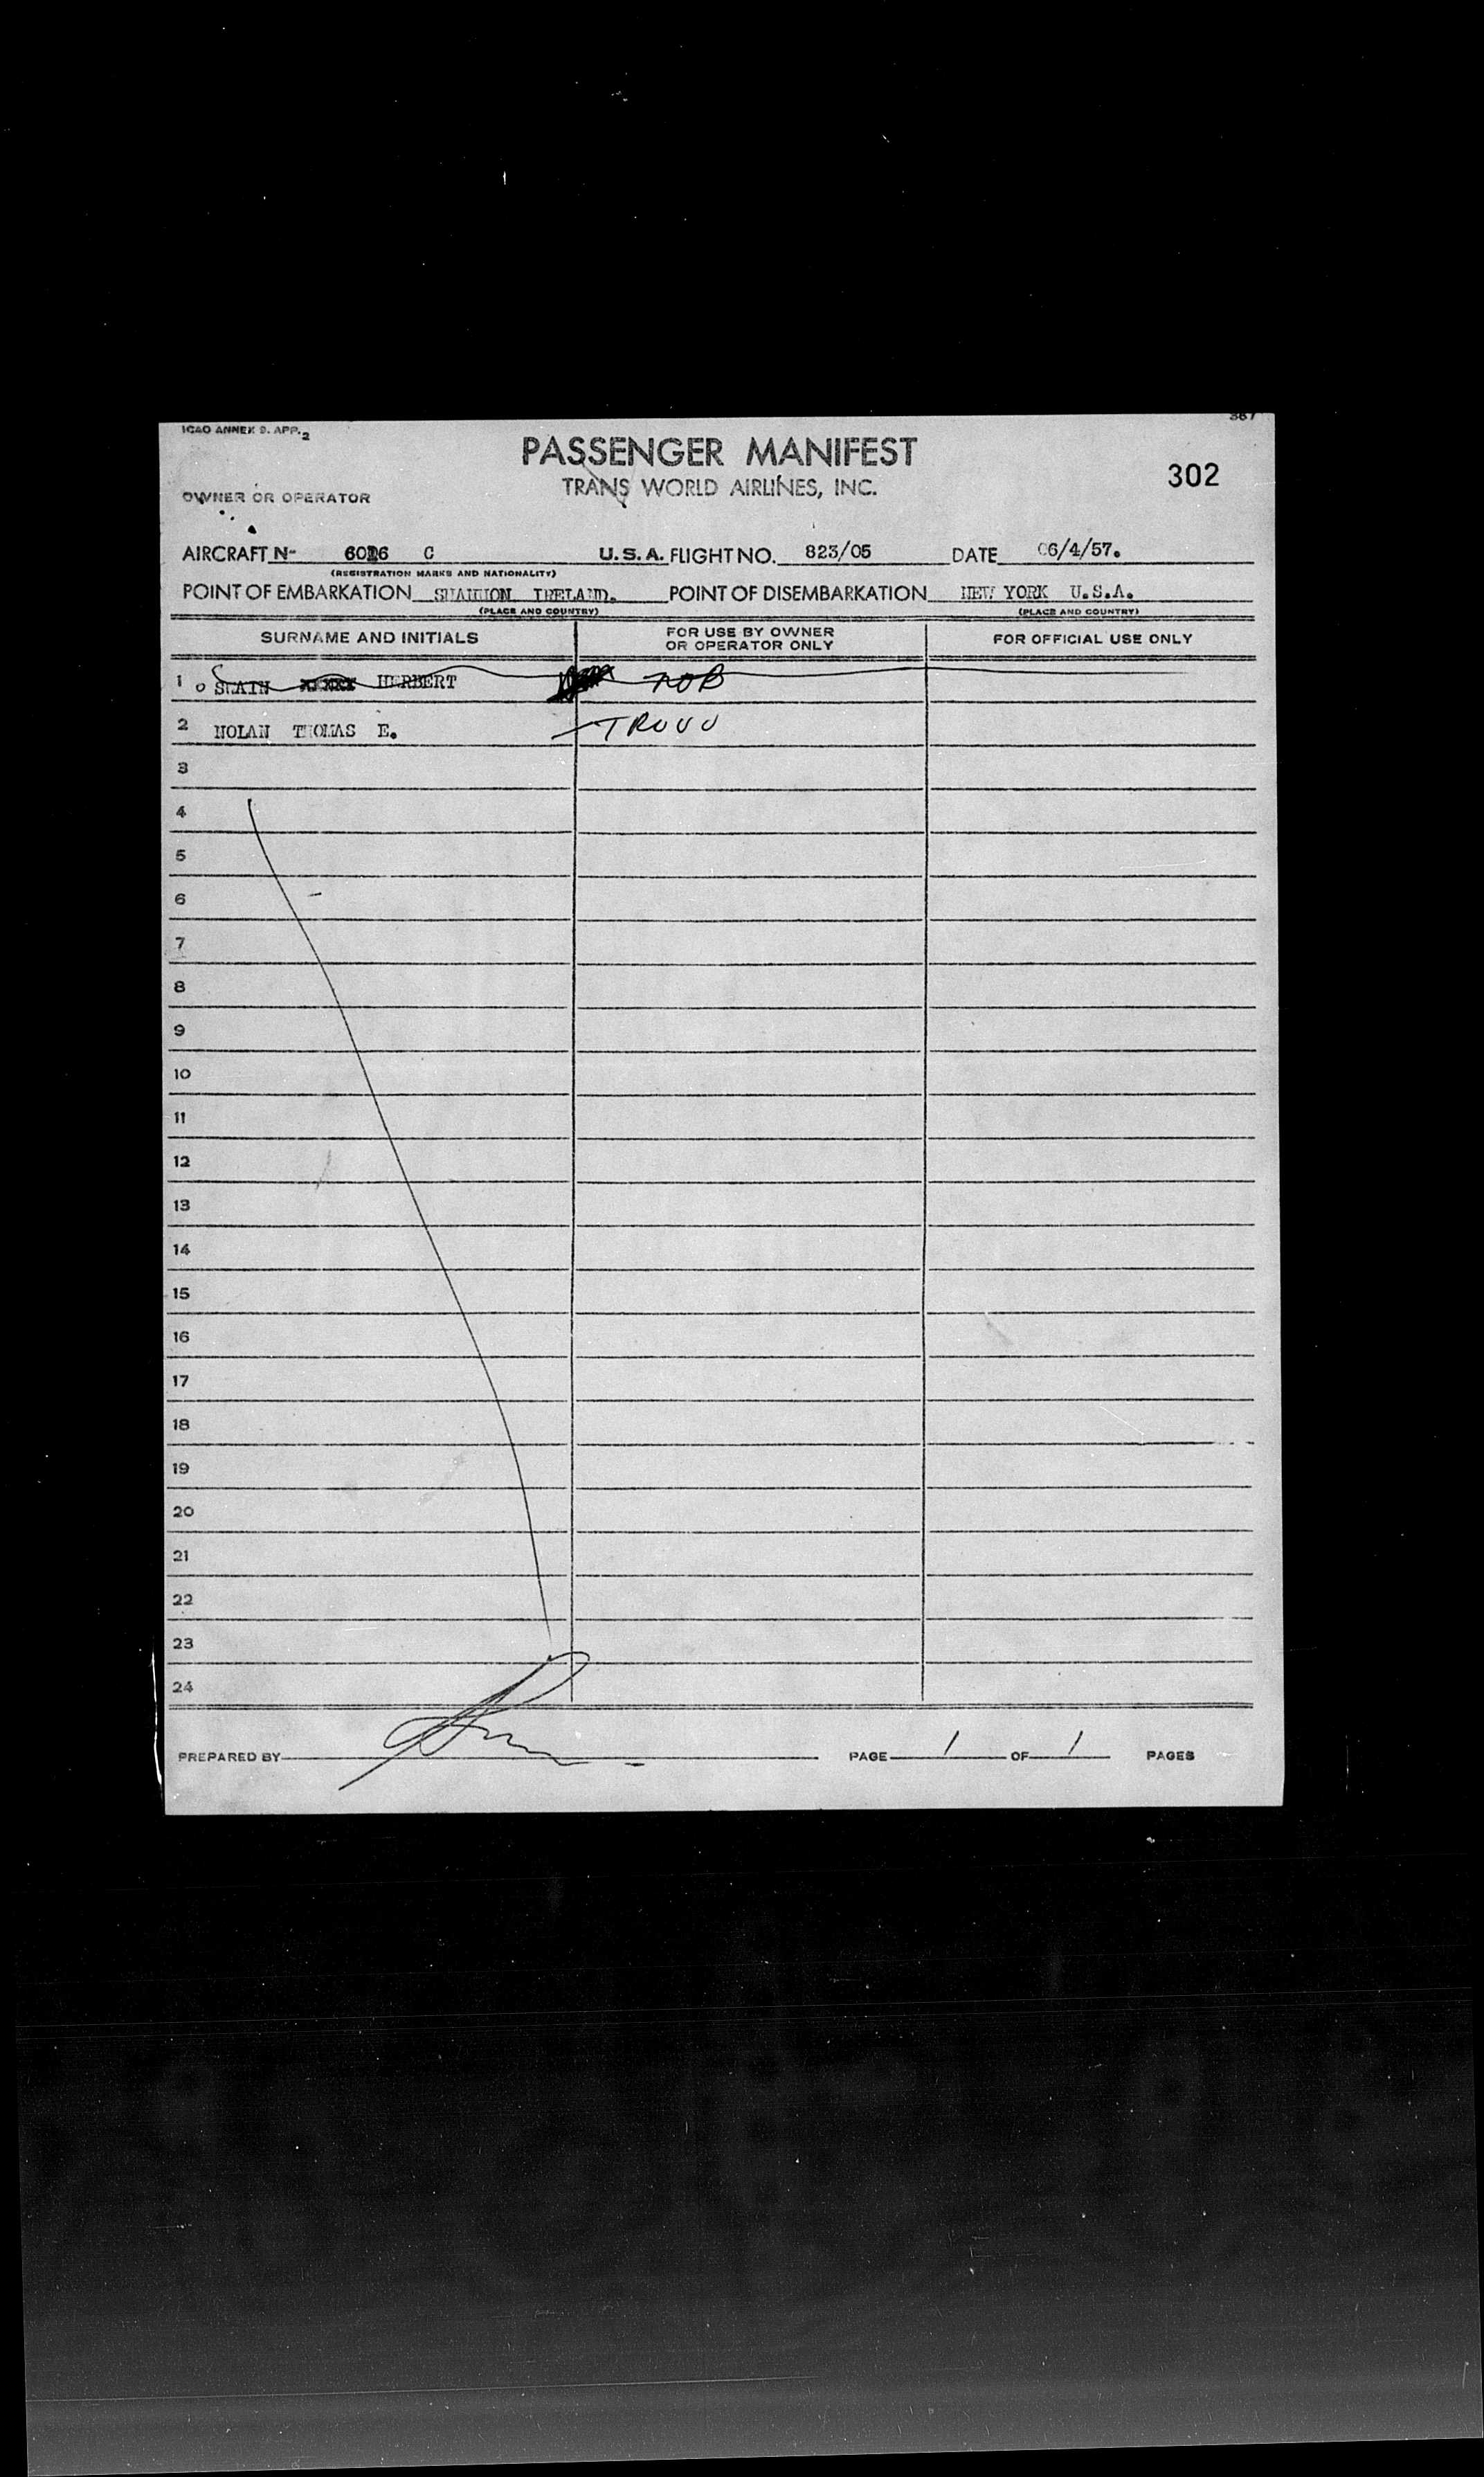 367
ICAO ANNEX 9. APP. 2
PASSENGER MANIFEST
302
TRANS WORLD AIRLINES, INC.
OWNER OR OPERATOR
AIRCRAFT N- C U.S.A. FLIGHT NO. 823/05 DATE 06/4/57.
(REGISTRATION MARKS AND NATIONALITY)
POINT OF EMBARKATION SHANNON IRELAND. POINT OF DISEMBARKATION NEW YORK U.S.A.
(PLACE AND COUNTRY) (PLACE AND COUNTRY)
SURNAME AND INITIALS FOR USE BY OWNER OR OPERATOR ONLY FOR OFFICIAL USE ONLY
1 HERBERT NOB
2 NOLAN THOMAS E.
3
4
5
6
7
8
9
10
11
12
13
14
15
16
17
18
19
20
21
22
23
24
PREPARED BY PAGE 1 OF 1 PAGES